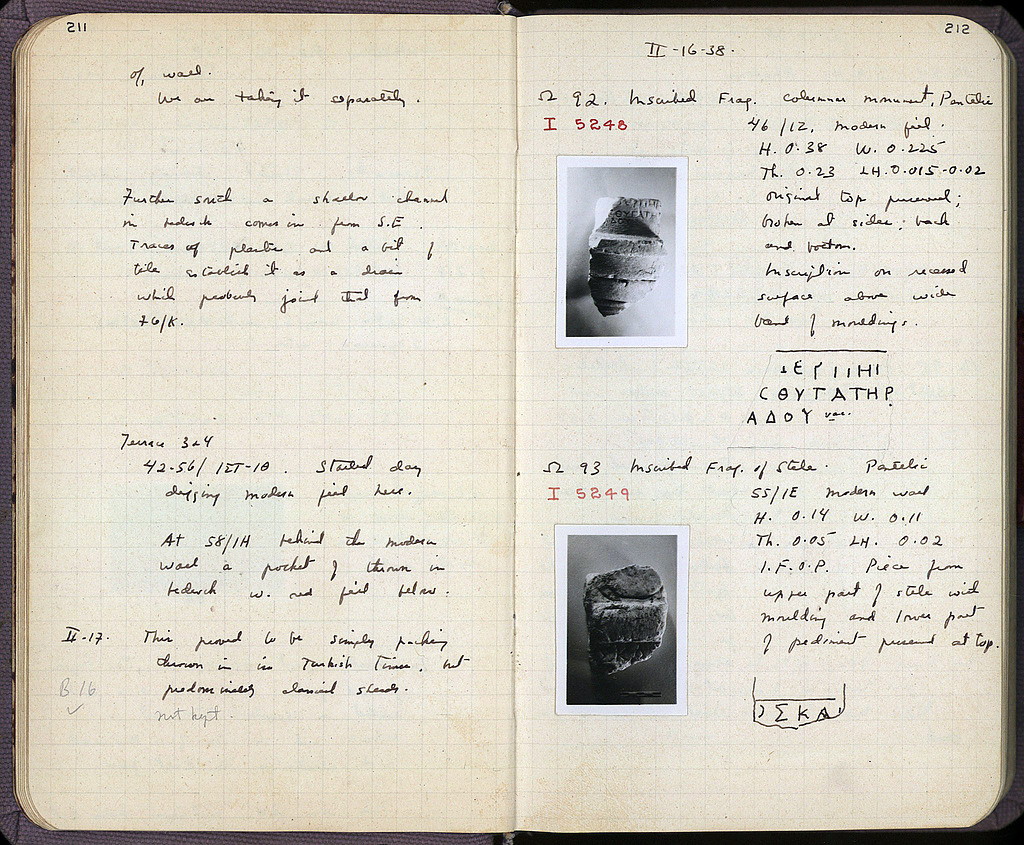 211
of wall.
We are taking it separately.
Further south a shallow channel
in bedrock comes in from S.E.
Traces of plaster and a bit of
tile establish it as a drain
which probably joined that from
76/K.
Terrace 3+4
42-56/ ΙΣΤ-ΙΘ. Started day
digging modern fill here.
At 58/ΙΗ behind the modern
wall a pocket of thrown in
bedrock w. red fill below.
II-17. This proved to be simply packing
thrown in in Turkish times, but
predominately classical sherds.
B 16 ✓
not kept.
212
II-16-38.
Ω 92. Inscribed Frag. columnar monument, Pentelic
I 5248
46/ΙΖ, modern fill.
H. 0.38 W. 0.225
Th. 0.23 LH. 0.015-0.02
original top preserved;
broken at sides, back
and bottom.
Inscription on recessed
surface above wide
band of mouldings.
ΘΥΓΑΤΗΡ
ΑΔΟΥ vac.
Ω 93 Inscribed Frag. of Stele. Pentelic
I 5249
55/ΙΕ modern wall
H. 0.14 W. 0.11
Th. 0.05 LH. 0.02
I.F.O.P. Piece from
upper part of stele with
moulding and lower part
of pediment preserved at top.
ΣΚΑ